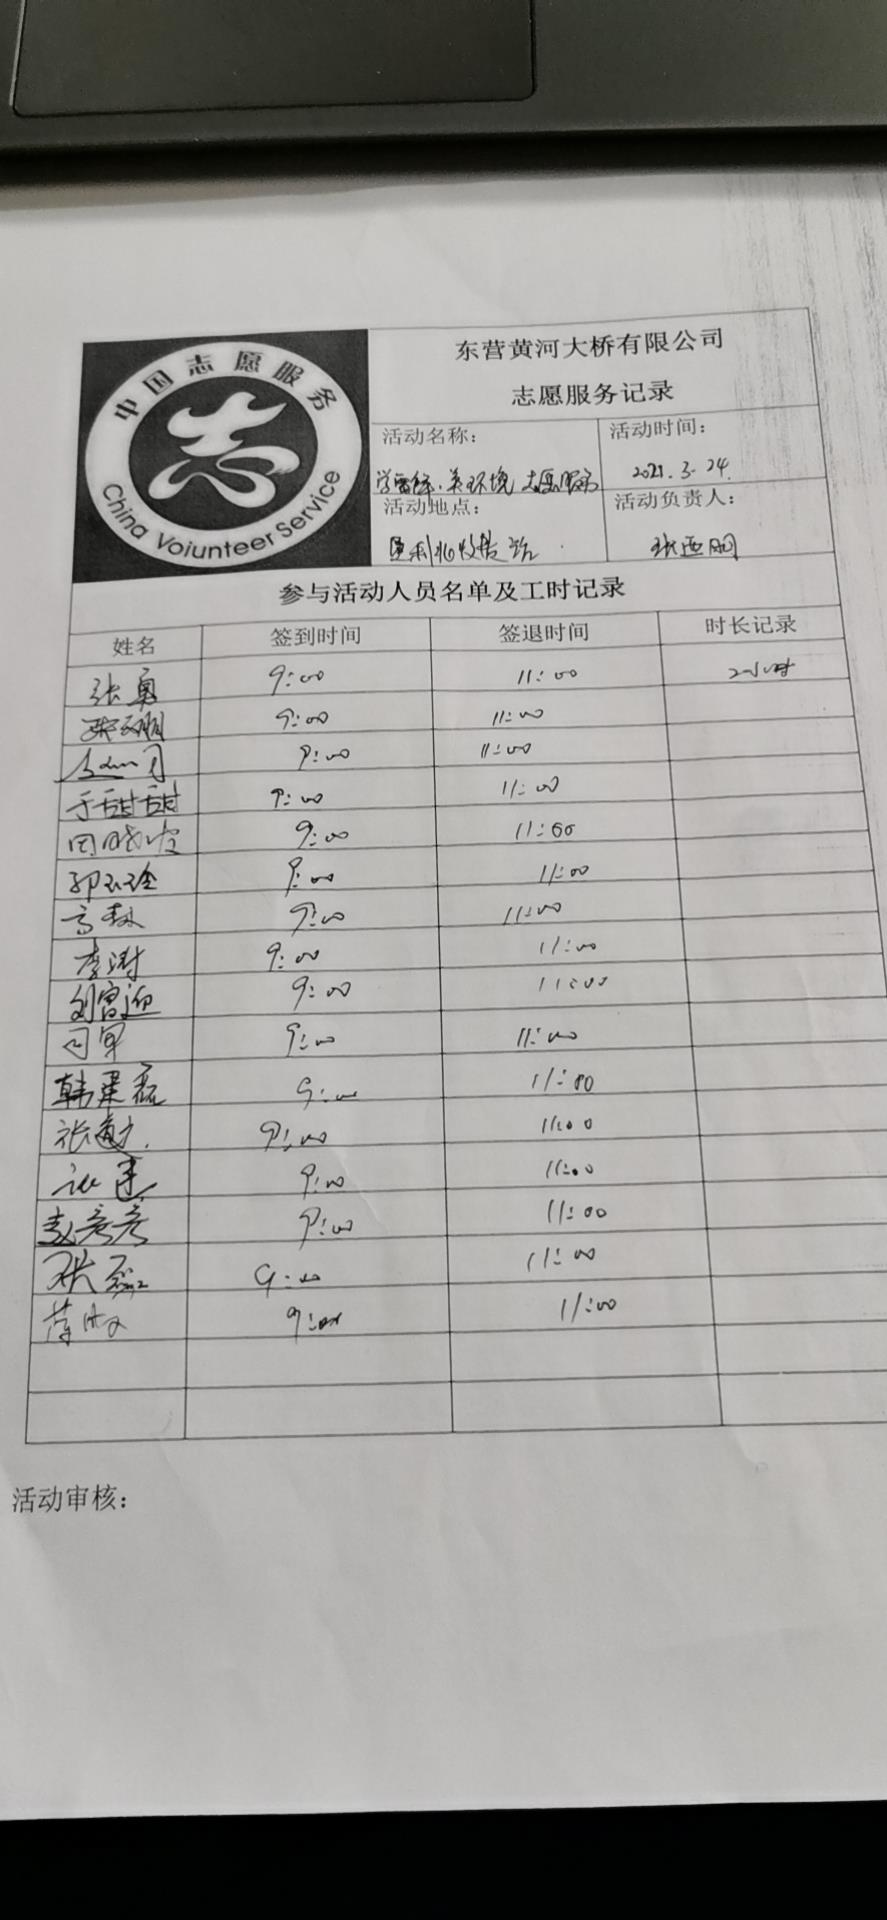 中国志愿服务
志
China Voiunteer Service
东营黄河大桥有限公司
志愿服务记录
活动名称： 活动时间：
学雷锋·美环境 志愿服务 2021.3.24.
活动地点： 活动负责人：
垦利北收费站
参与活动人员名单及工时记录
姓名 签到时间 签退时间 时长记录
张勇 9:00 11:00 2小时
9:00 11:00
9:00 11:00
于甜甜 9:00 11:00
田晓 9:00 11:00
郭玉玲 9:00 11:00
高 9:00 11:00
李涛 9:00 11:00
刘富迎 9:00 11:00
司军 9:00 11:00
韩建磊 9:00 11:00
张 9:00 11:00
9:00 11:00
赵彦彦 9:00 11:00
张磊 9:00 11:00
9:00 11:00
活动审核：